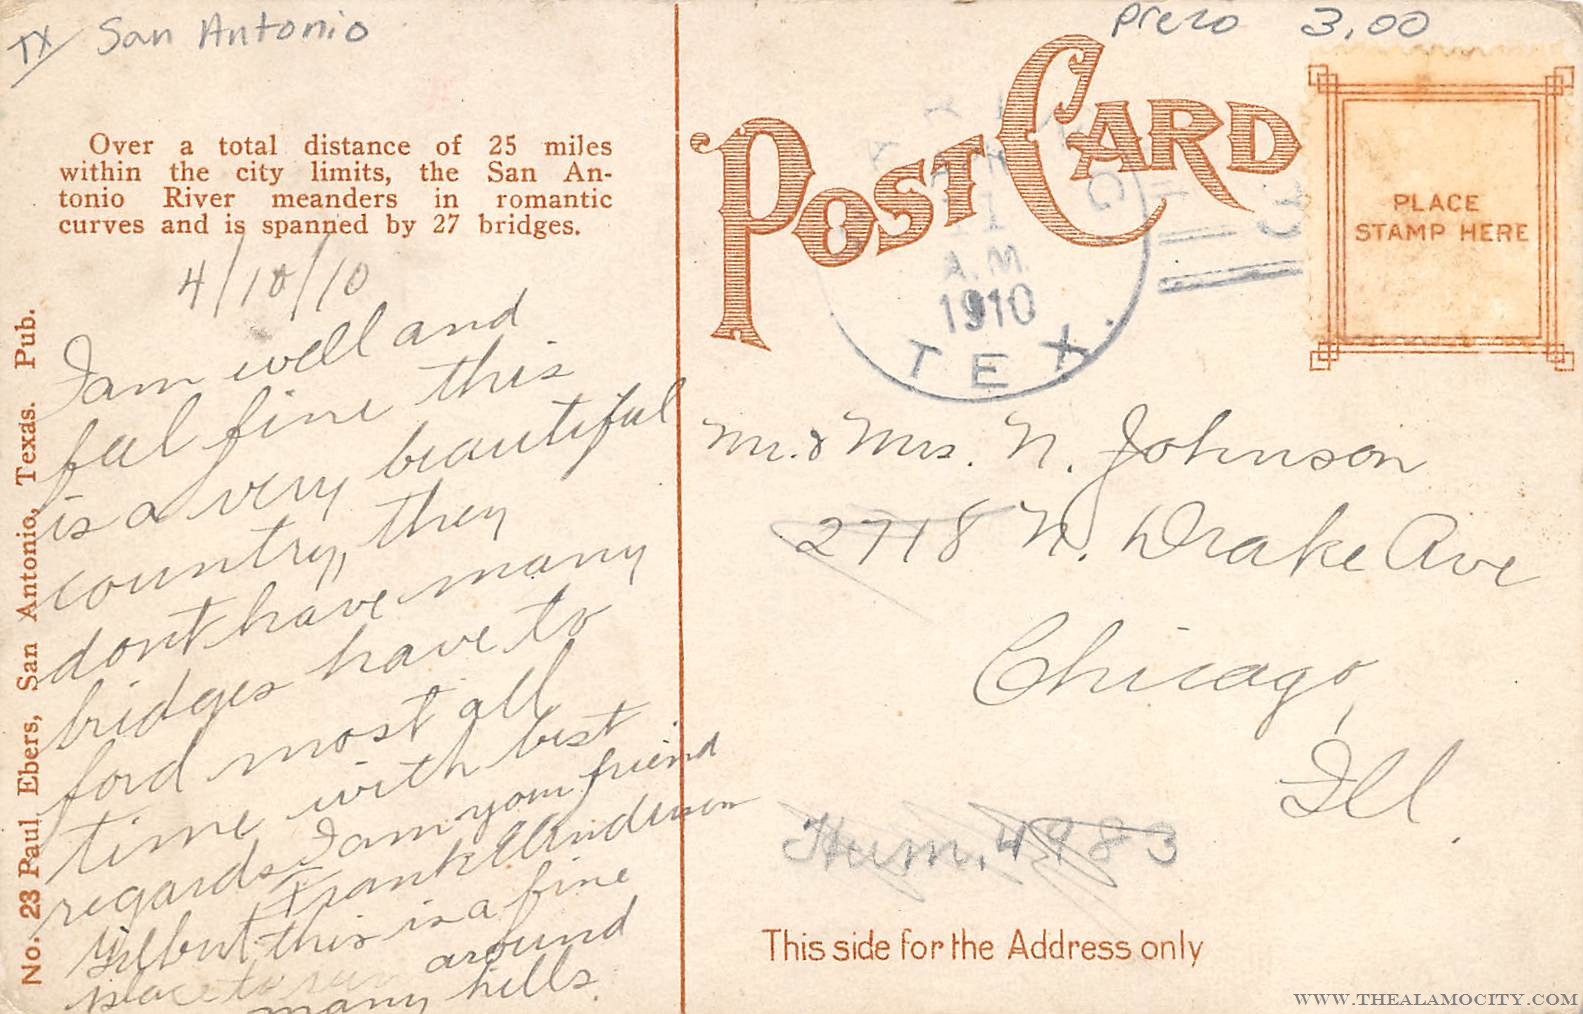 TX San Antonio
Preso 3.00
Over a total distance of 25 miles
within the city limits, the San An-
tonio River meanders in romantic
curves and is spanned by 27 bridges.
4/10/10
I am well and
feel fine this
is a very beautiful
country, they
dont have many
bridges have to
ford most all
time with best
regards I am your friend
Frank Anderson
Gilbert this is a fine
place to run around
many hills.
No. 23 Paul Ebers, San Antonio, Texas. Pub.
POST CARD
A.M.
1910
TEX.
PLACE
STAMP HERE
Mr. & Mrs. N. Johnson
2718 N. Drake Ave
Chicago,
Ill.
Hum. 4983
This side for the Address only
WWW.THEALAMOCITY.COM